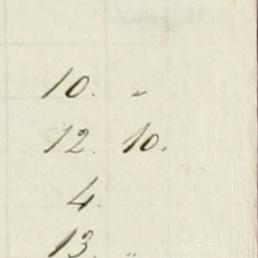 10. "
12. 10.
4.
13. "